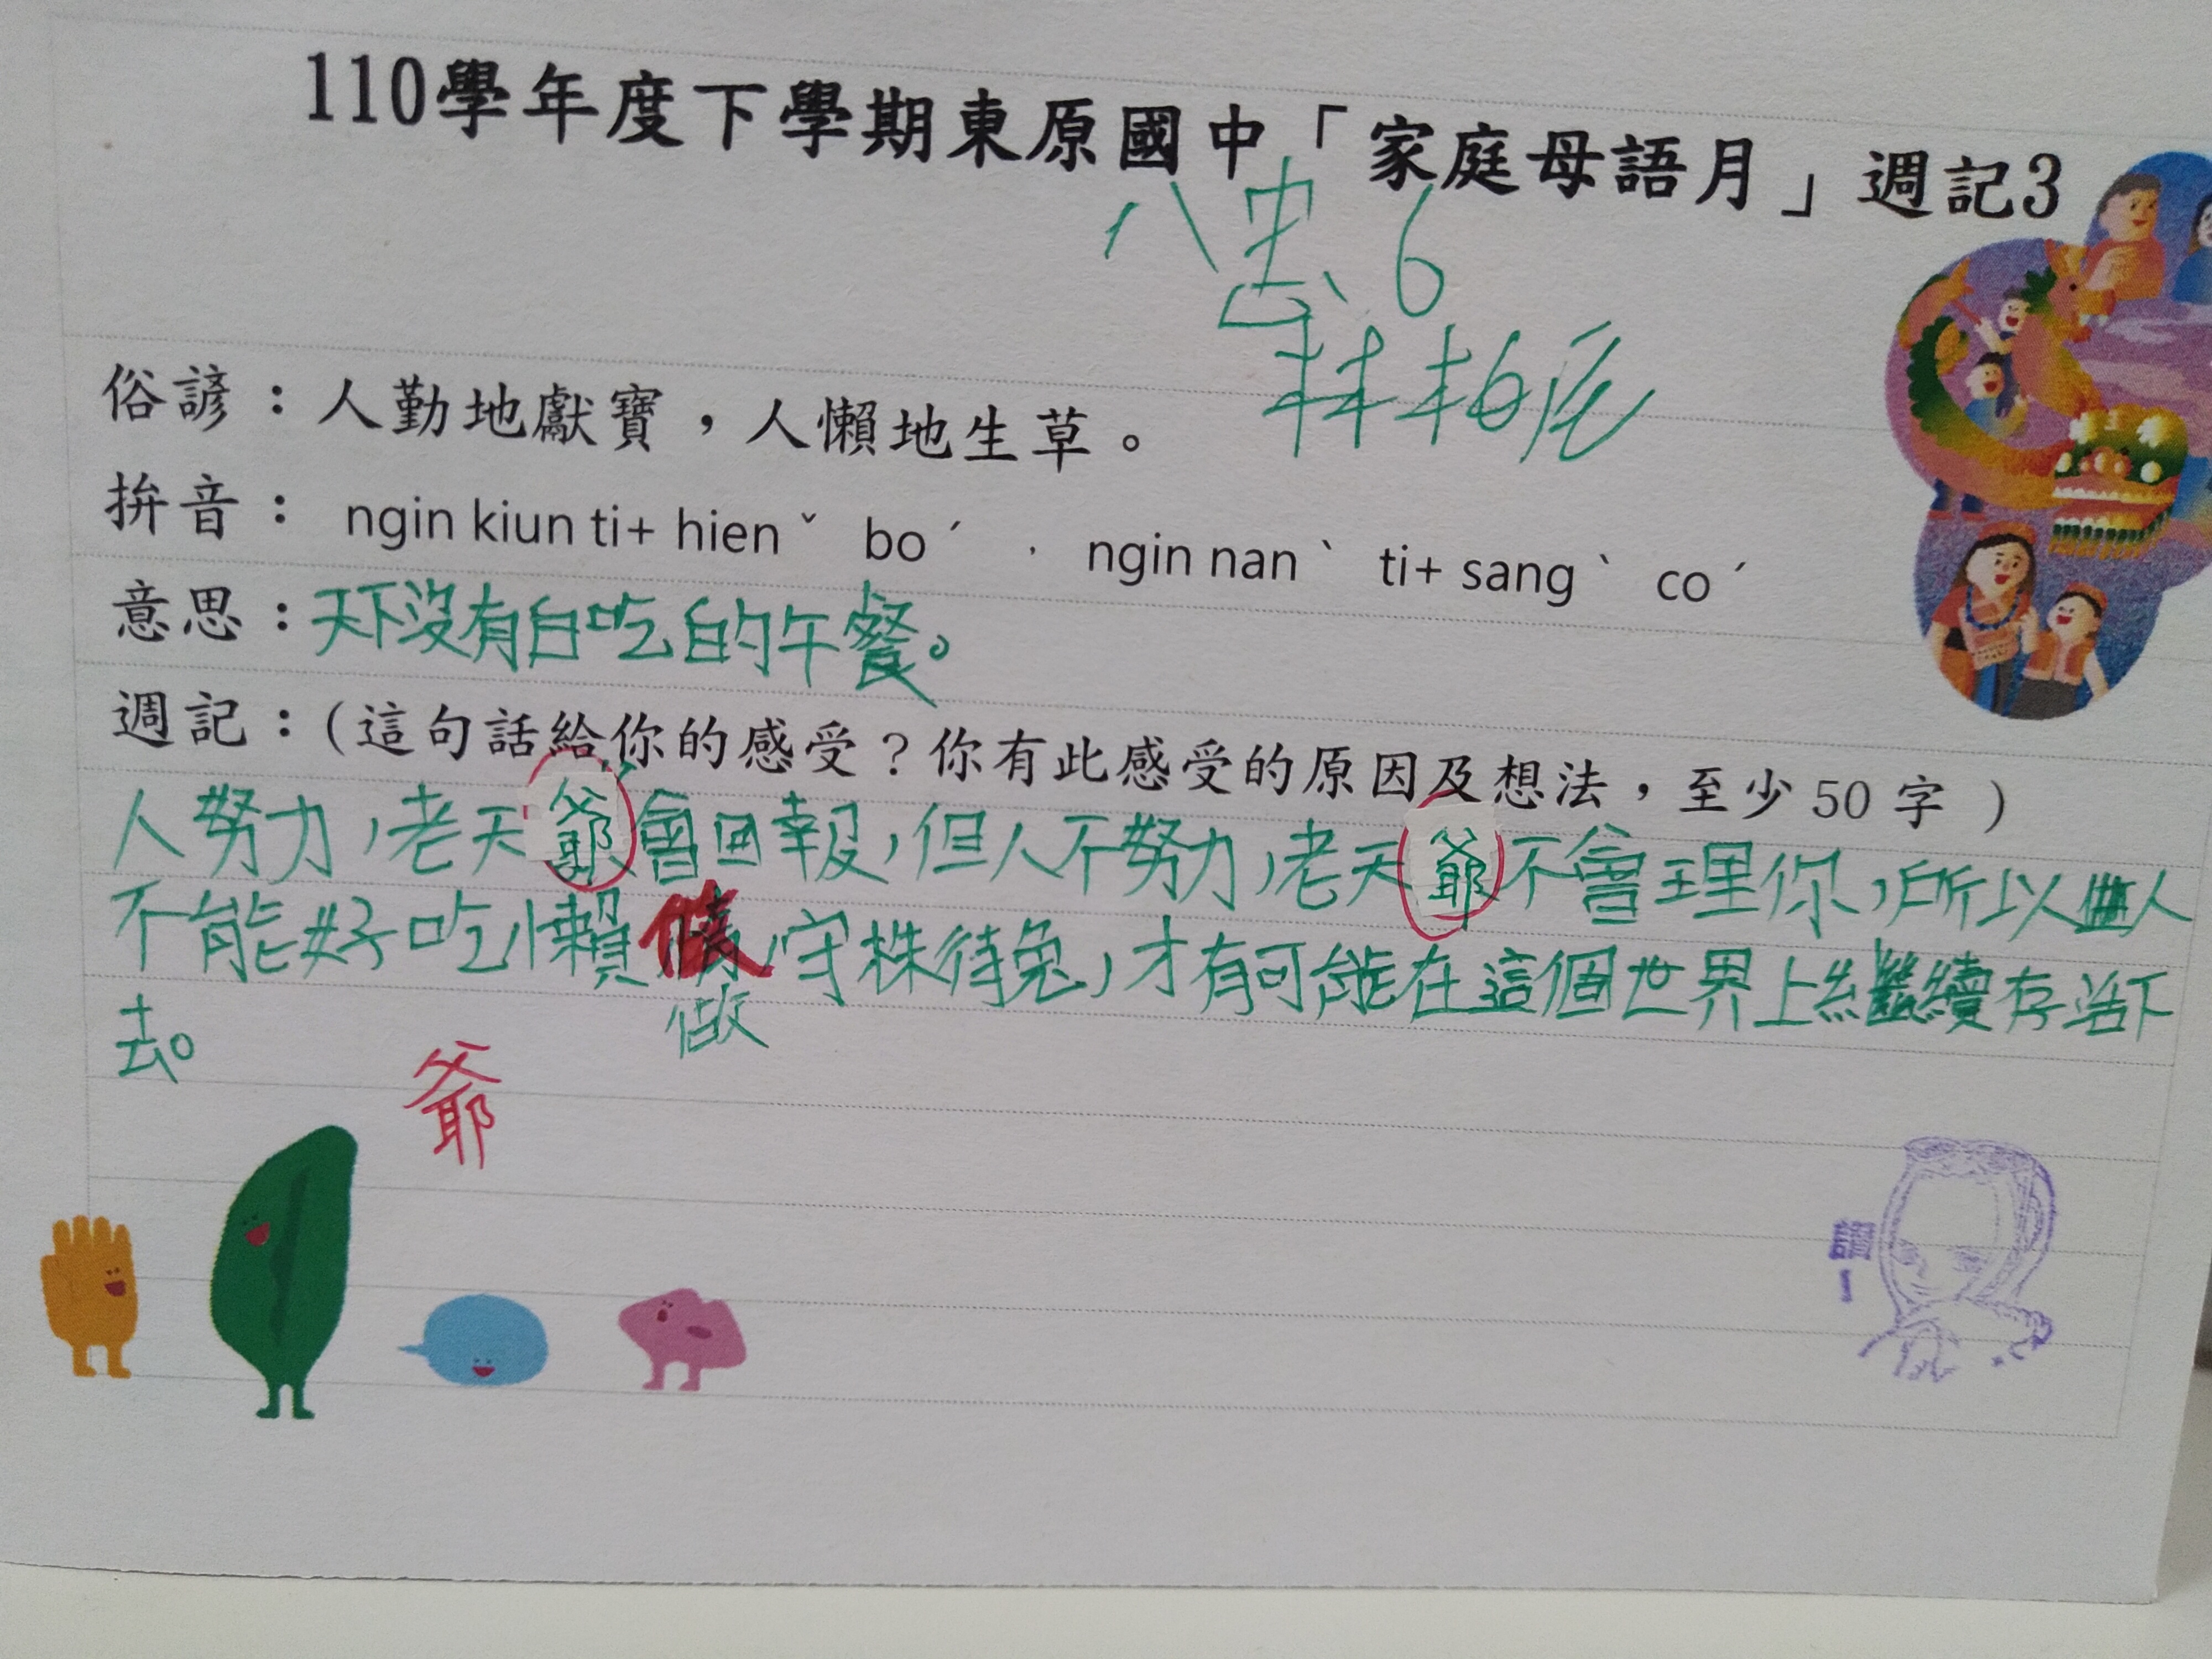 110學年度下學期東原國中「家庭母語月」週記3
八忠 6
林柏辰
俗諺：人勤地獻寶，人懶地生草。
拚音： ngin kiun ti+ hienˇ boˊ ， ngin nanˋ ti+ sangˋ coˊ
意思：天下沒有白吃的午餐。
週記：(這句話給你的感受？你有此感受的原因及想法，至少50字 )
人努力，老天爺會回報，但人不努力，老天爺不會理你，所以人
不能好吃懶 守株待兔，才有可能在這個世界上繼續存活下
做
去。
爺
讚！